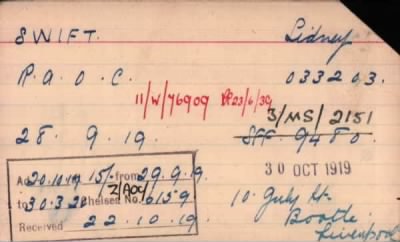 SWIFT. Sidney
R.A.O.C. 033203.
11/W/76909 23/6/39
3/MS/2151
28. 9. 19. SFF. 9480.
30 OCT 1919
20.10.19 15/- from 29.9.19.
Z/AOC/
to 30.3.20 Chelsea No. 6159
Received 22.10.19
10 July St.
Bootle.
Liverpool